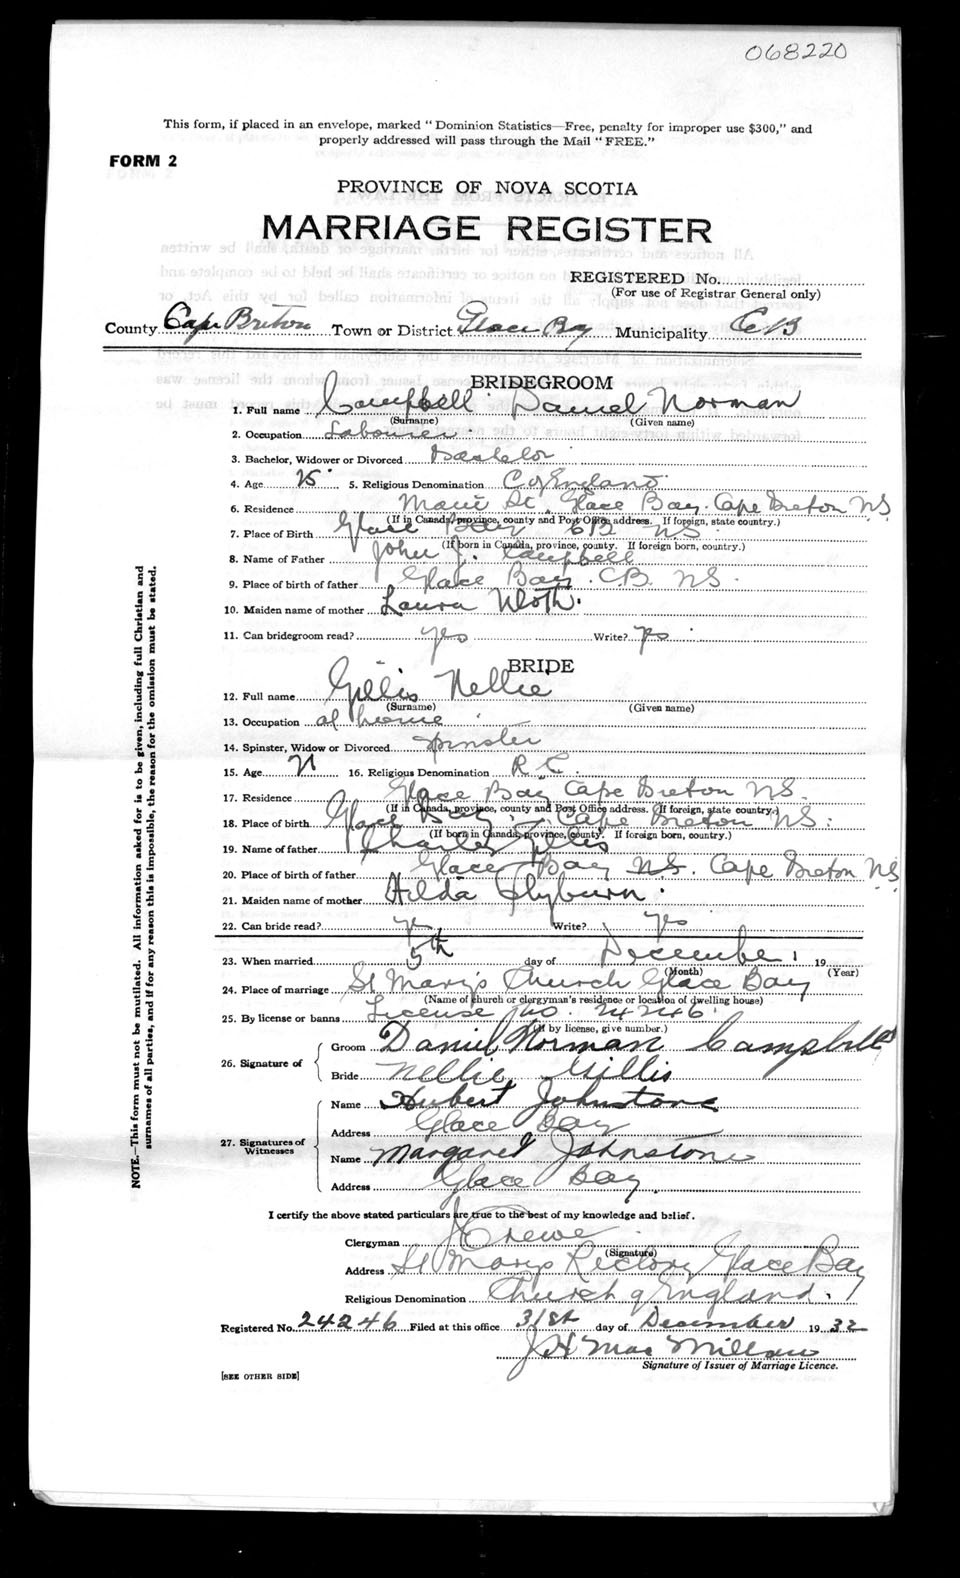 068220
This form, if placed in an envelope, marked "Dominion Statistics—Free, penalty for improper use $300," and
properly addressed will pass through the Mail "FREE."
FORM 2
PROVINCE OF NOVA SCOTIA
MARRIAGE REGISTER
REGISTERED No.
(For use of Registrar General only)
County Cape Breton Town or District Glace Bay Municipality CB
BRIDEGROOM
1. Full name Campbell Daniel Norman
(Surname) (Given name)
2. Occupation Labourer
3. Bachelor, Widower or Divorced Bachelor
4. Age 25 5. Religious Denomination C of England
6. Residence Main St. Glace Bay. Cape Breton NS
(If in Canada, province, county and Post Office address. If foreign, state country.)
7. Place of Birth Glace Bay CB NS
(If born in Canada, province, county. If foreign born, country.)
8. Name of Father John J. Campbell
9. Place of birth of father Glace Bay. C.B. NS.
10. Maiden name of mother Laura
11. Can bridegroom read? yes Write? yes
BRIDE
12. Full name Gillis Nellie
(Surname) (Given name)
13. Occupation at home
14. Spinster, Widow or Divorced Spinster
15. Age 16. Religious Denomination R.C.
17. Residence Glace Bay Cape Breton NS.
(If in Canada, province, county and Post Office address. If foreign, state country.)
18. Place of birth Glace Bay, Cape Breton NS.
(If born in Canada, province, county. If foreign born, country.)
19. Name of father Charles Gillis
20. Place of birth of father Glace Bay NS. Cape Breton NS
21. Maiden name of mother Hilda Clyburn.
22. Can bride read? yes Write? yes
23. When married 5th day of December 19
(Month) (Year)
24. Place of marriage St Mary's Church Glace Bay
(Name of church or clergyman's residence or location of dwelling house)
25. By license or banns License No. 24246.
(If by license, give number.)
26. Signature of Groom Daniel Norman Campbell
Bride Nellie Gillis
27. Signatures of Witnesses Name Hubert Johnstone
Address Glace Bay
Name Margaret Johnstone
Address Glace Bay.
I certify the above stated particulars are true to the best of my knowledge and belief.
Clergyman J Crewe
(Signature)
Address St Marys Rectory Glace Bay
Religious Denomination Church of England.
Registered No. 24246 Filed at this office 31st day of December 1932
J H MacMillan
Signature of Issuer of Marriage Licence.
[SEE OTHER SIDE]
NOTE.—This form must not be mutilated. All information asked for is to be given, including full Christian and
surnames of all parties, and if for any reason this is impossible, the reason for the omission must be stated.